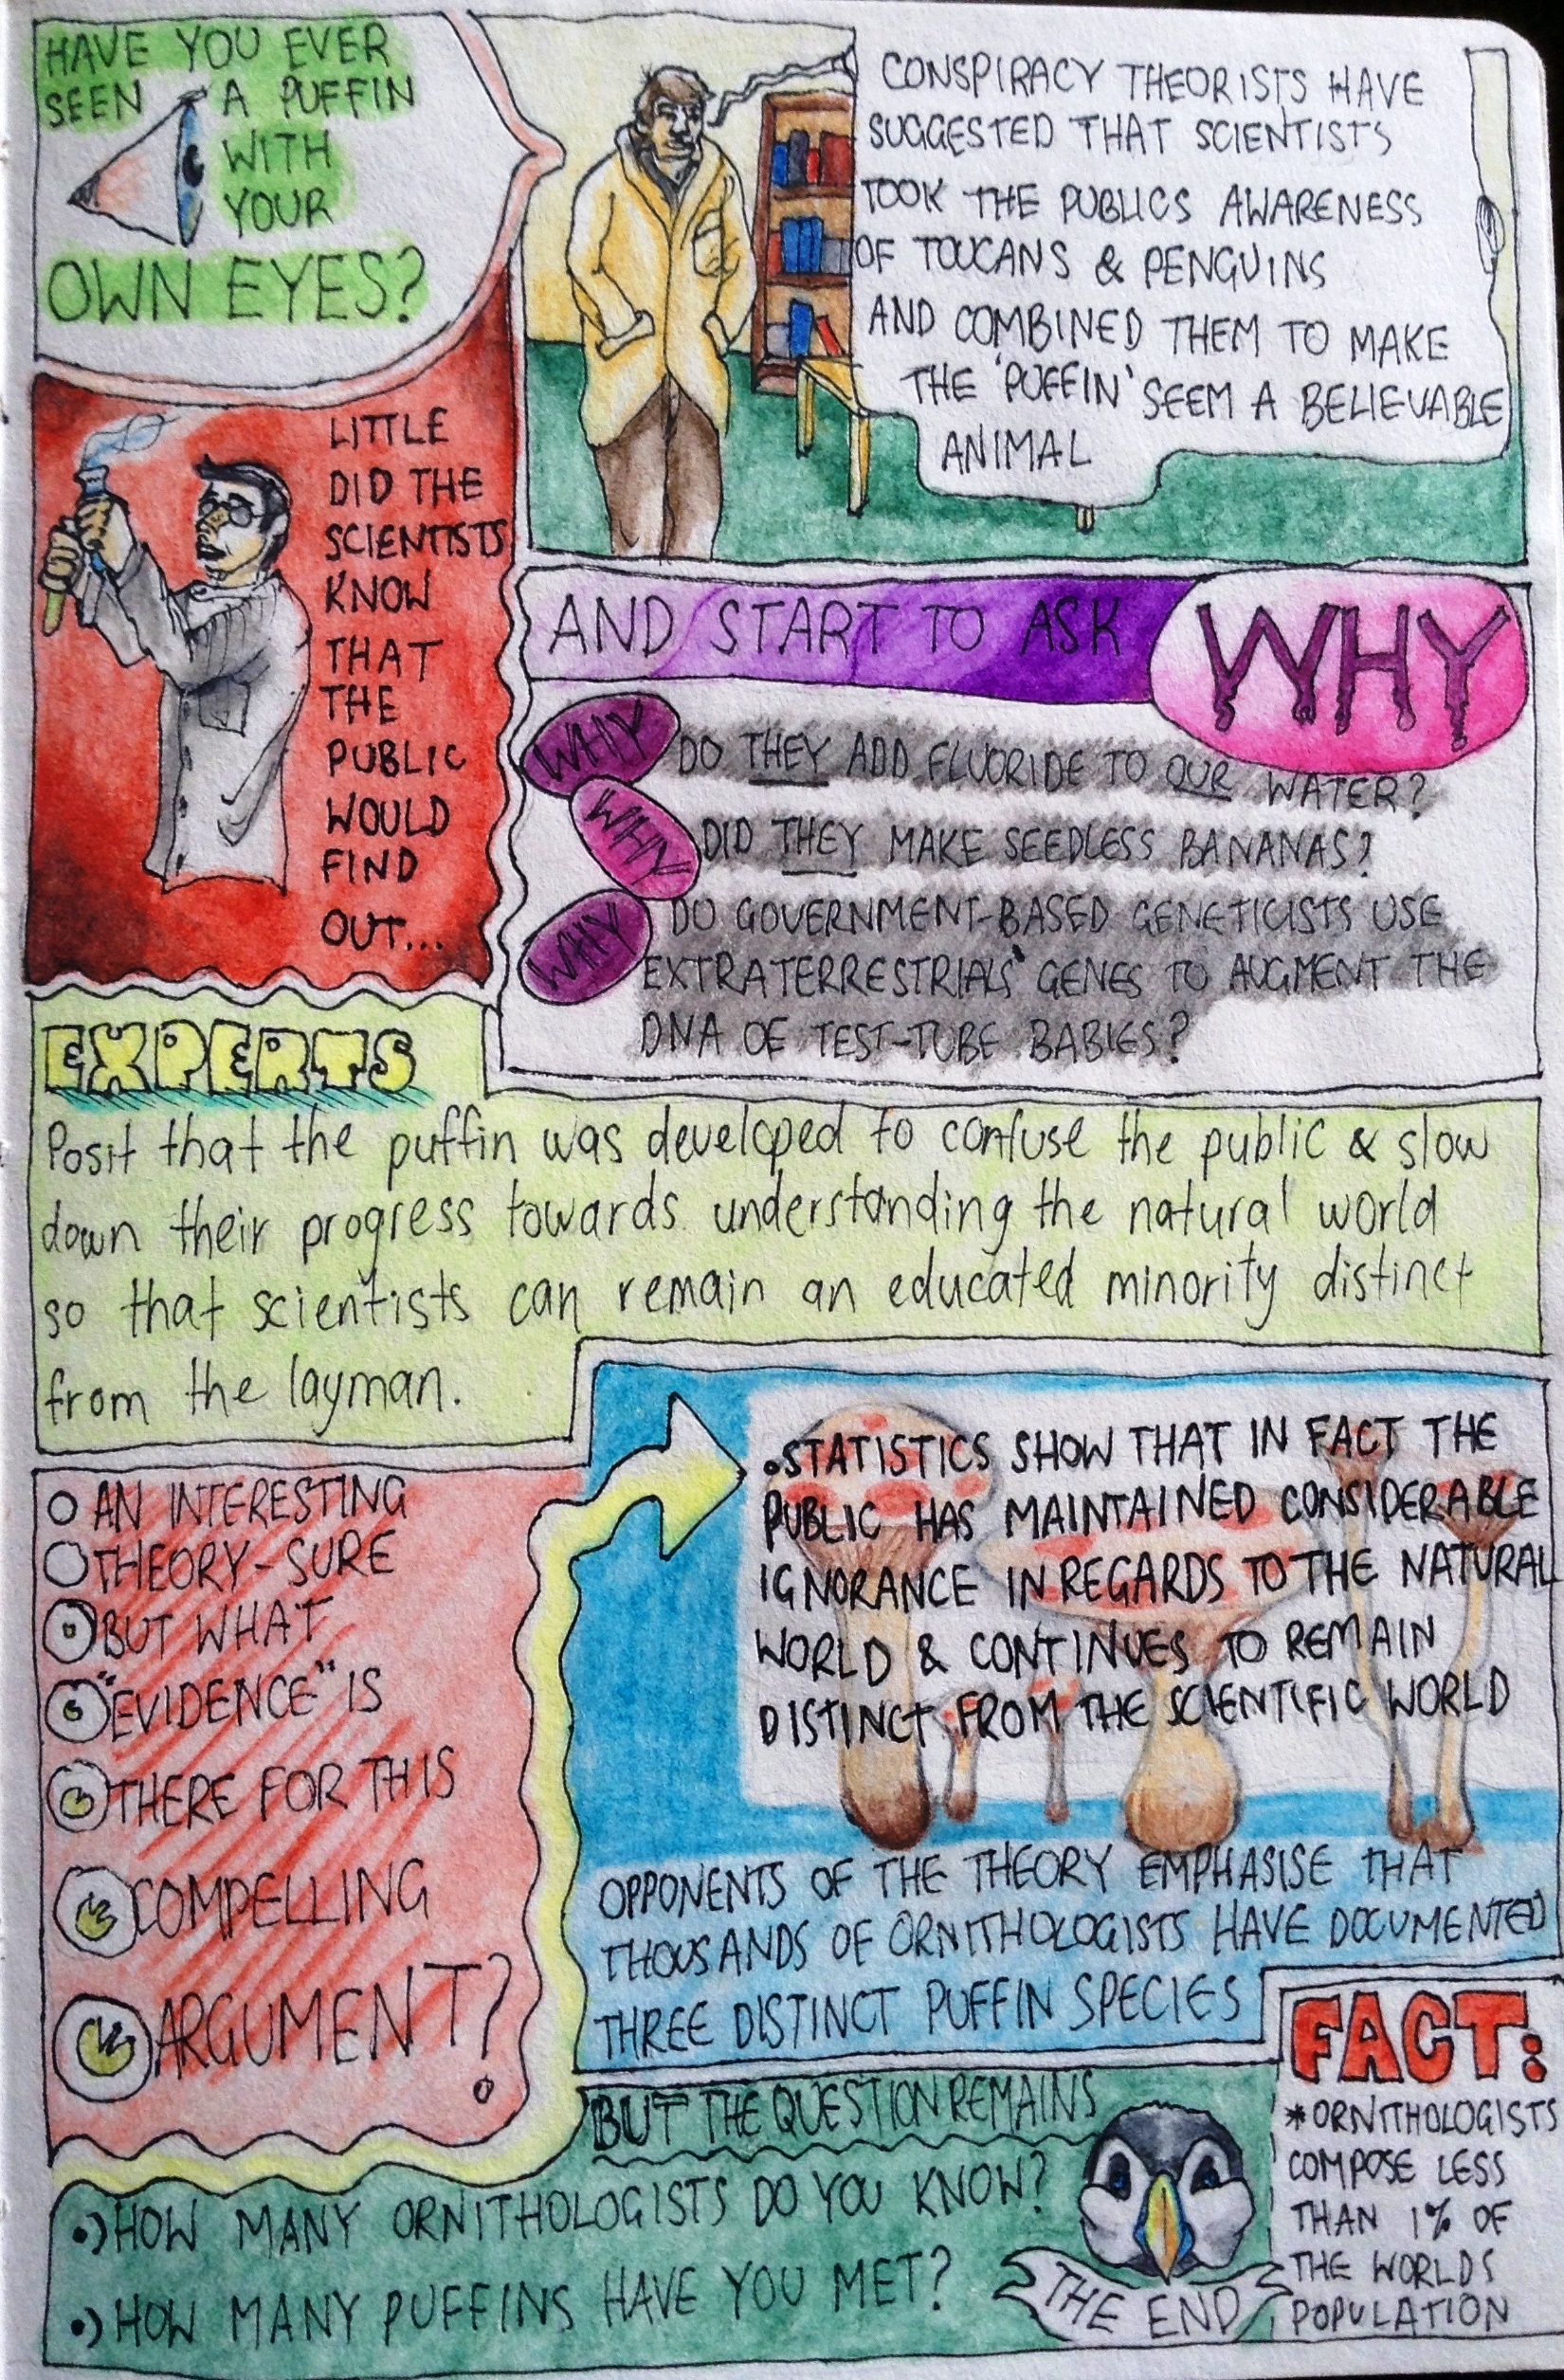 HAVE YOU EVER
SEEN A PUFFIN
WITH
YOUR
OWN EYES?
CONSPIRACY THEORISTS HAVE
SUGGESTED THAT SCIENTISTS
TOOK THE PUBLICS AWARENESS
OF TOUCANS & PENGUINS
AND COMBINED THEM TO MAKE
THE 'PUFFIN' SEEM A BELIEVABLE
ANIMAL
LITTLE
DID THE
SCIENTISTS
KNOW
THAT
THE
PUBLIC
WOULD
FIND
OUT...
AND START TO ASK WHY
WHY DO THEY ADD FLUORIDE TO OUR WATER?
WHY DID THEY MAKE SEEDLESS BANANAS?
WHY DO GOVERNMENT-BASED GENETICISTS USE
EXTRATERRESTRIALS' GENES TO AUGMENT THE
DNA OF TEST-TUBE BABIES?
EXPERTS
Posit that the puffin was developed to confuse the public & slow
down their progress towards understanding the natural world
so that scientists can remain an educated minority distinct
from the layman.
AN INTERESTING
THEORY-SURE
BUT WHAT
"EVIDENCE" IS
THERE FOR THIS
COMPELLING
ARGUMENT?
•STATISTICS SHOW THAT IN FACT THE
PUBLIC HAS MAINTAINED CONSIDERABLE
IGNORANCE IN REGARDS TO THE NATURAL
WORLD & CONTINUES TO REMAIN
DISTINCT FROM THE SCIENTIFIC WORLD
OPPONENTS OF THE THEORY EMPHASISE THAT
THOUSANDS OF ORNITHOLOGISTS HAVE DOCUMENTED
THREE DISTINCT PUFFIN SPECIES
BUT THE QUESTION REMAINS
•) HOW MANY ORNITHOLOGISTS DO YOU KNOW?
•) HOW MANY PUFFINS HAVE YOU MET?
THE END
FACT:
*ORNITHOLOGISTS
COMPOSE LESS
THAN 1% OF
THE WORLDS
POPULATION